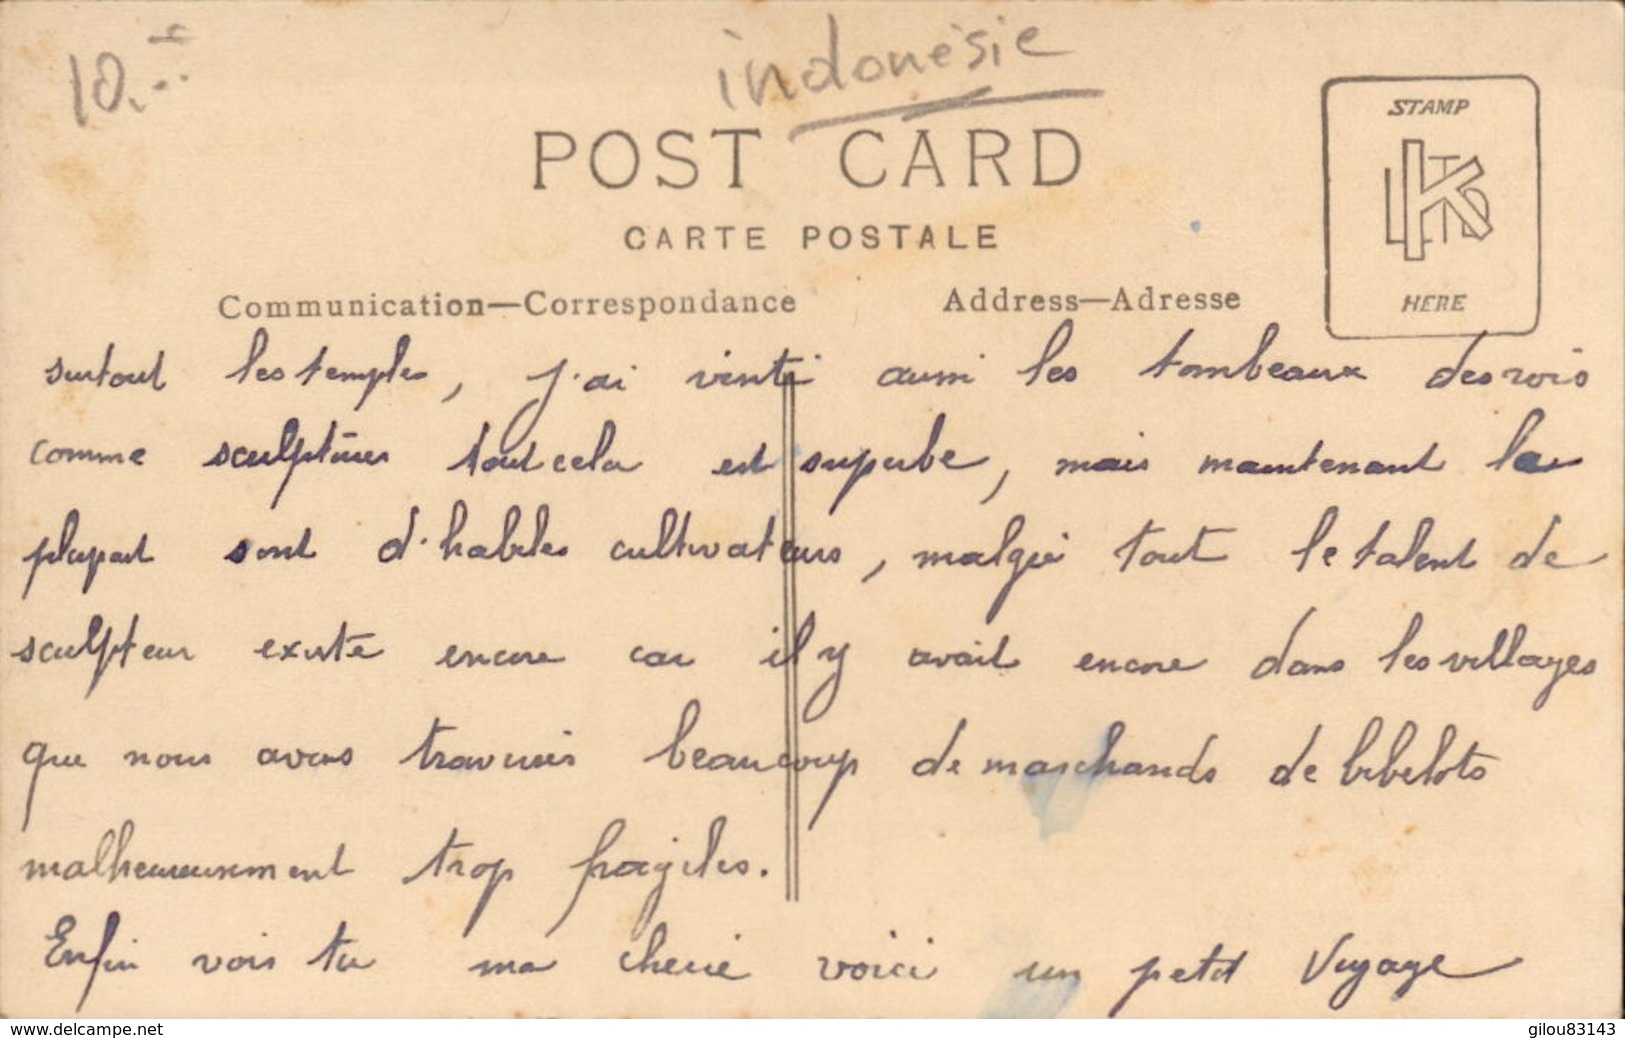 10.-
indonésie
POST CARD
CARTE POSTALE
Communication—Correspondance
Address—Adresse
STAMP
HERE
surtout les temples, j'ai visité aussi les tombeaux des rois
comme sculptures tout cela est superbe, mais maintenant la
plupart sont d'habiles cultivateurs, malgré tout le talent de
sculpteur existe encore car il y avait encore dans les villages
que nous avons traversés beaucoup de marchands de bibelots
malheureusement trop fragiles.
Enfin vois tu ma cherie voici un petit voyage
www.delcampe.net
gilou83143